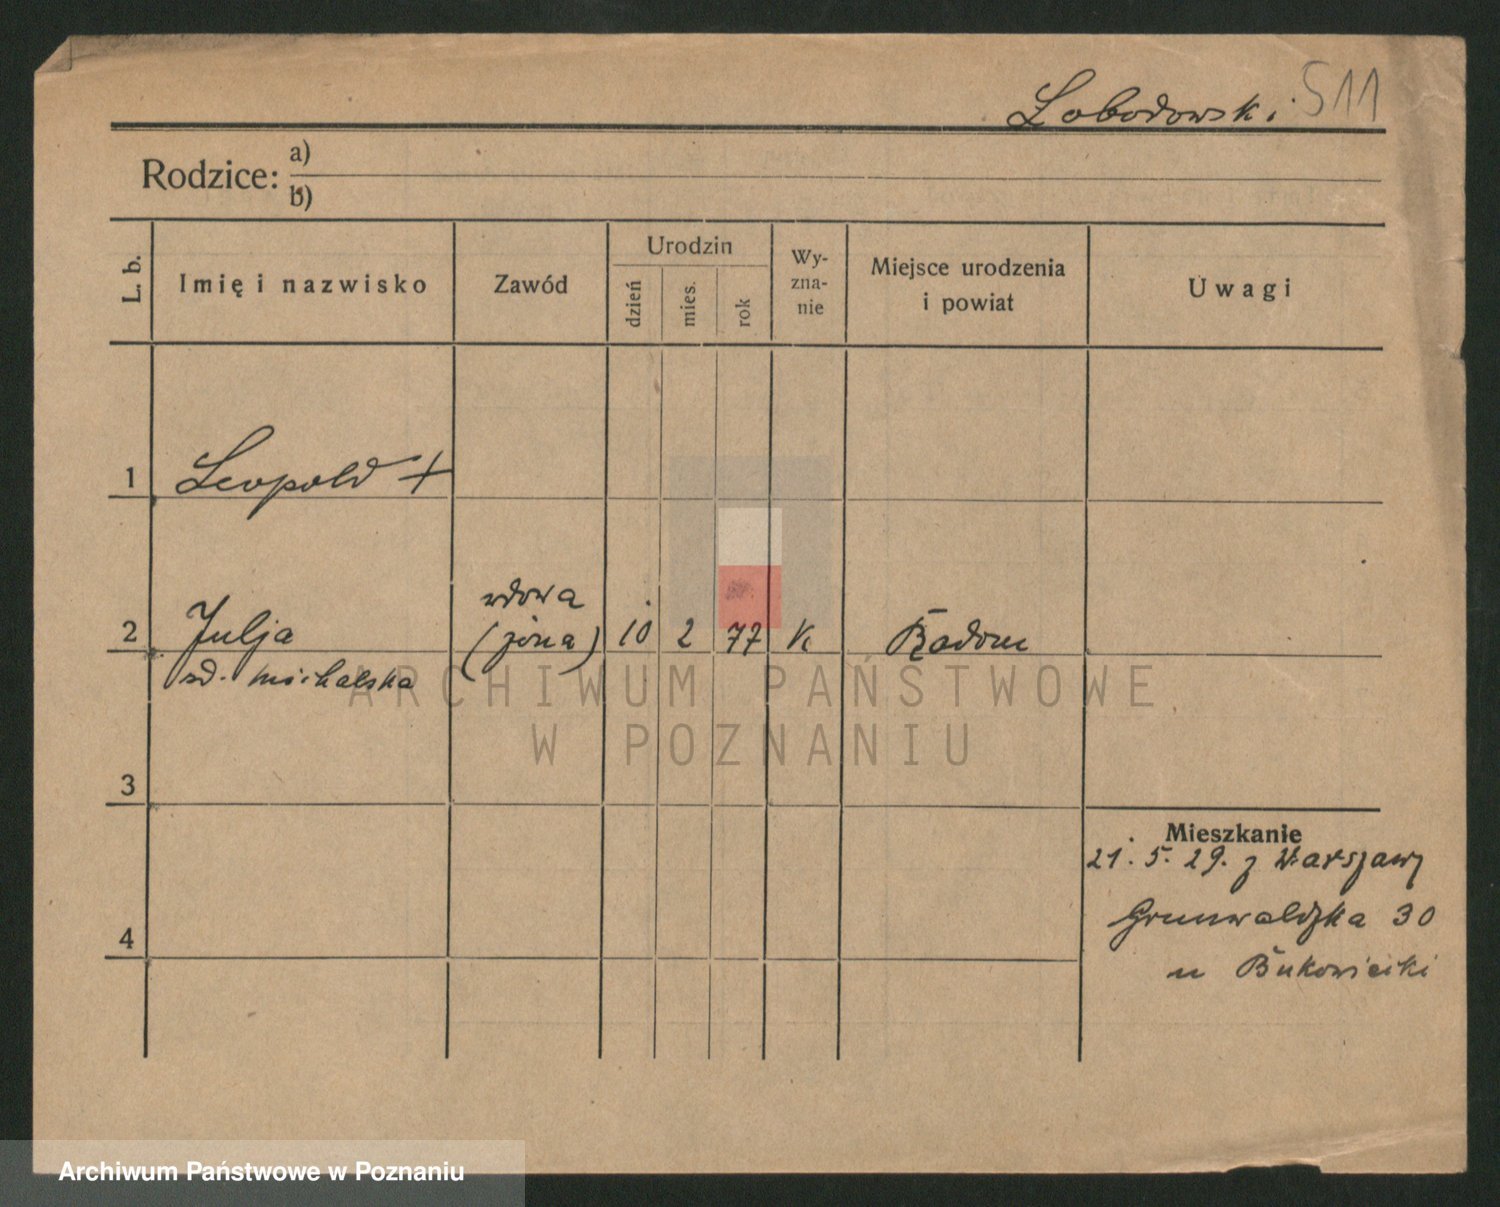 Łobodowski 511
Rodzice: a)
b)
L. b.
Imię i nazwisko
Zawód
Urodzin
dzień
mies.
rok
Wy-
zna-
nie
Miejsce urodzenia
i powiat
Uwagi
1 Leopold +
wdowa
2 Julja (żona) 10 2 77 k Radom
zd. Michalska
ARCHIWUM PAŃSTWOWE
W POZNANIU
3
Mieszkanie
21. 5. 29. z Warszawy
Grunwaldzka 30
4
u Bukowiecki
Archiwum Państwowe w Poznaniu